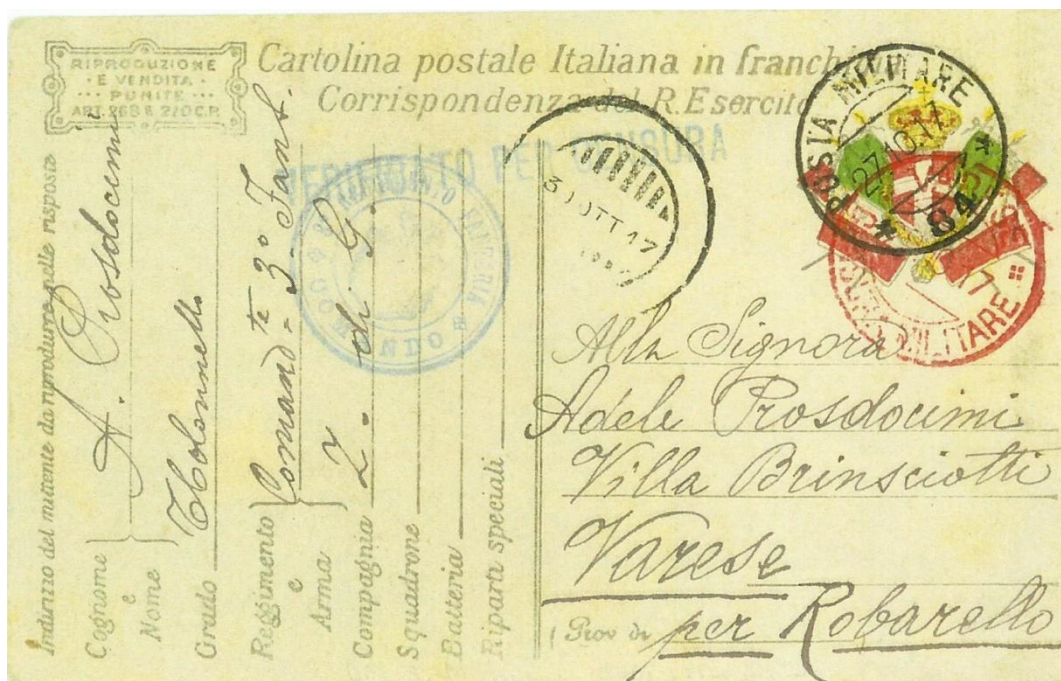 RIPRODUZIONE
E VENDITA
PUNITE
ART. 268 E 270 C.P.
Cartolina postale Italiana in franchi
Corrispondenza del R. Esercito
VERIFICATO PER CENSURA
POSTA MILITARE
27.10.17
64
30 OTT 17
MILITARE
17
COMANDO
FANTERIA
Indirizzo del mittente da riprodurre nelle risposte
Cognome e Nome
A. Prosdocimi
Grado
Colonnello
Reggimento e Arma
Comand.te 3° Fant.
Compagnia
Z. di G.
Squadrone
Batteria
Riparti speciali
Alla Signora
Adele Prosdocimi
Villa Brinsciotti
Varese
( Prov di per Robarello